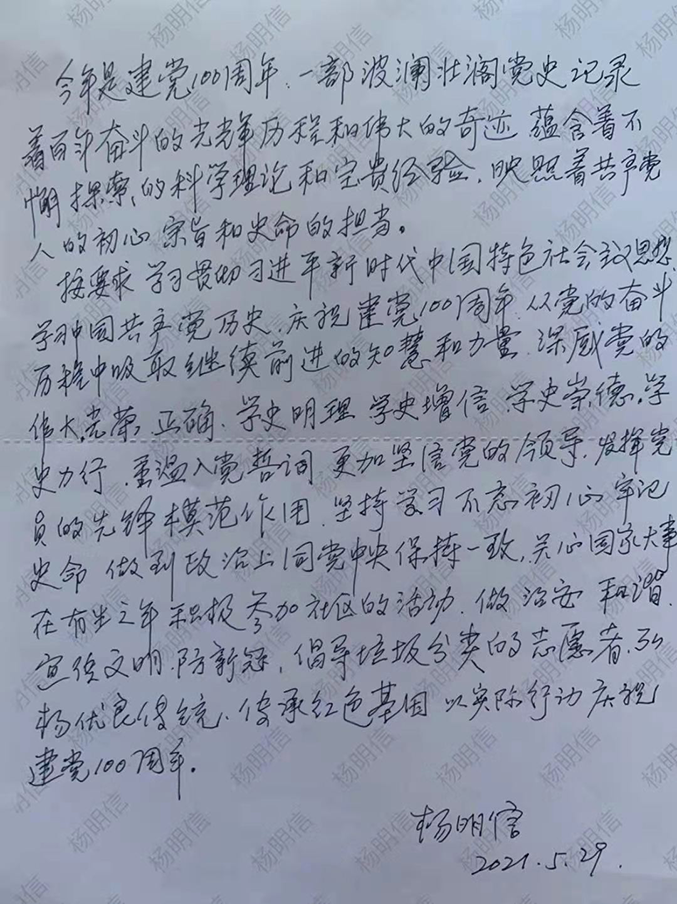 今年是建党100周年,一部波澜壮阔党史记录
着百年奋斗的光辉历程和伟大的奇迹,蕴含着不
懈探索的科学理论和宝贵经验,映照着共产党
人的初心宗旨和史命的担当。
按要求学习贯彻习进平新时代中国特色社会主义思想,
学习中国共产党历史,庆祝建党100周年,从党的奋斗
历程中吸取继续前进的知慧和力量,深感党的
伟大,光荣,正确,学史明理,学史增信,学史崇德,学
史力行,重温入党誓词,更加坚信党的领导,发挥党
员的先锋模范作用,坚持学习不忘初心牢记
史命,做到政治上同党中央保持一致,关心国家大事
在有生之年积极参加社区的活动,做治安和谐,
宣传文明,防新冠,倡导垃圾分类的志愿者,弘
杨优良传统,传承红色基因,以实际行动庆祝
建党100周年。
杨明信
2021.5.29.
杨明信